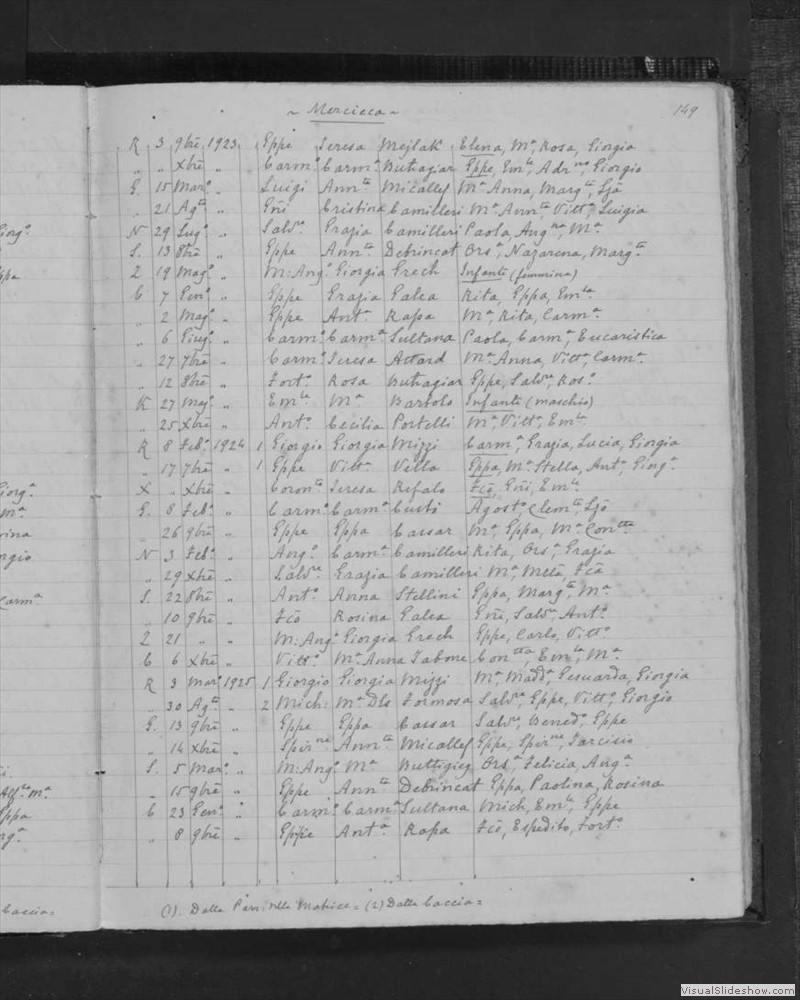 ~ Mercieca ~ 149
R 3 9bre 1923 Eppe Teresa Mejlak Elena, Mª Rosa, Giorgia
„ „ Xbre „ Carmº Carmª Buttagiar Eppe, Emle, Adrno, Giorgio
G. 15 Marº „ Luigi Annta Micallef Mª Anna, Margta, Ljă
„ 21 Agto „ Gni Cristina Camilleri Mª Annta, Vittª, Luigia
N 29 Lugº „ Salvre Grazia Camilleri Paola, Angna, Mª
S. 13 8bre „ Eppe Annta Debrincat Orsª, Nazarena, Margta
Z 19 Magº „ M: Angº Giorgia Grech Infante (femmina)
C 7 Genº „ Eppe Grazia Galea Rita, Eppa, Emla
„ 2 Magº „ Eppe Antª Rapa Mª, Rita, Carmª
„ 6 Giugº „ Carmº Carmª Sultana Paola, Carmª, Eucaristica
„ 27 7bre „ Carmº Teresa Attard Mª Anna, Vittª, Carmª
„ 12 8bre „ Fortº Rosa Buttagiar Eppe, Salvre, Rosº
K 27 Magº „ Emle Mª Bartolo Infante (maschio)
„ 25 Xbre „ Antº Cecilia Portelli Mª, Vittª, Emla
R 8 Febº 1924 1 Giorgio Giorgia Mizzi Carmª, Grazia, Lucia, Giorgia
„ 17 7bre „ 1 Eppe Vittª Vella Eppa, Mª Stella, Antª, Giorgª
X „ Xbre „ Coronto Teresa Refalo Fcŏ, Gni, Emle
G. 8 Febº „ Carmº Carmª Curti Agostº, Clemte, Ljŏ
„ 26 9bre „ Eppe Eppa Cassar Mª, Eppa, Mª Contta
N 3 Febº „ Angº Carmª Camilleri Rita, Orsª, Grazia
„ 29 Xbre „ Salvre Grazia Camilleri Mª, Melă, Fcă
S. 22 8bre „ Antº Anna Stellini Eppa, Margta, Mª
„ 10 9bre „ Fcŏ Rosina Galea Gni, Salvre, Antº
Z 21 „ „ M: Angº Giorgia Grech Eppe, Carlo, Vittº
C 6 Xbre „ Vittº Mª Anna Tabone Contta, Emla, Mª
R 3 Marº 1925 1 Giorgio Giorgia Mizzi Mª Maddª, Gesuarda, Giorgia
„ 30 Agto „ 2 Mich: Mª Dls Formosa Salvre, Eppe, Vittº, Giorgio
G. 13 9bre „ Eppe Eppa Cassar Salvre, Benedº, Eppe
„ 14 Xbre „ Spirne Annta Micallef Eppe, Spirne, Tarcisio
S. 5 Marº „ M: Angº Mª Buttigieg Orsª, Felicia, Angª
„ 15 9bre „ Eppe Annta Debrincat Eppa, Paolina, Rosina
C 23 Genº „ Carmº Carmª Sultana Mich, Emle, Eppe
„ 8 9bre „ Eppe Antª Rapa Fcŏ, Espedito, Fortº
(1). Dalla Parr. nella Matrice = (2) Dalla Caccia =
VisualSlideshow.com